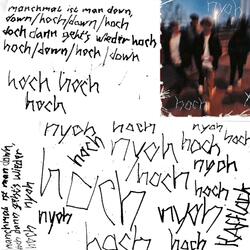 manchmal ist man down,
down/hoch/down/hoch
doch dann geht's wieder hoch
hoch/down/hoch/down
hoch hoch
hoch
nyoh
hoch
nyoh
hoch
nyoh
hoch
hoch
nyoh
hoch
nyoh
hoch
hoch
nyoh
hoch
nyoh
hoch
nyoh
hoch
manchmal ist man down,
doch dann geht's wieder
hoch
nyoh